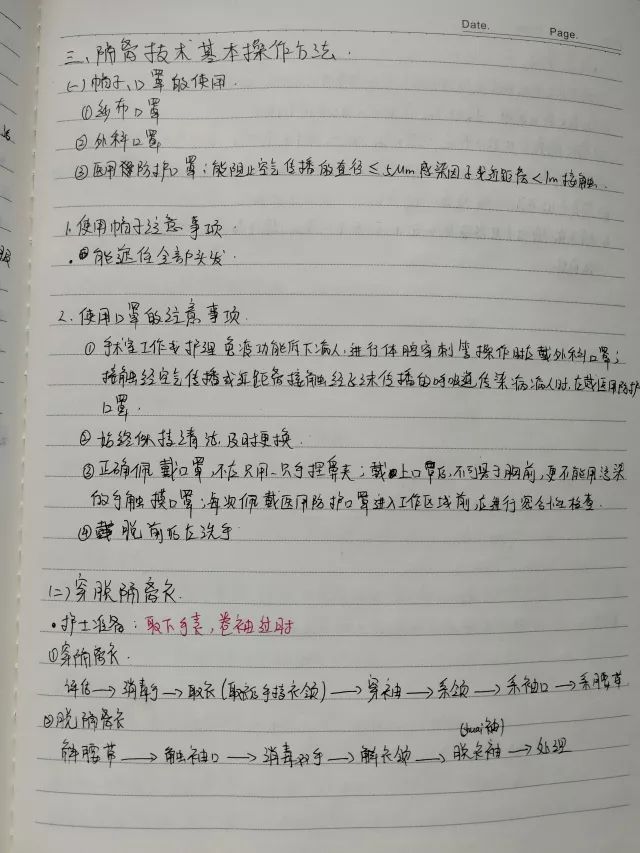 Date.
Page.
三、隔离技术基本操作方法.
(一)帽子、口罩的使用.
①纱布口罩
②外科口罩
③医用防护口罩:能阻止空气传播的直径≤5μm感染因子或近距离<1m接触.
1.使用帽子注意事项
·能遮住全部头发.
2.使用口罩的注意事项.
①手术室工作或护理免疫功能低下病人,进行体腔穿刺等操作时应戴外科口罩;
接触经空气传播或近距离接触经飞沫传播的呼吸道传染病病人时,应戴医用防护
口罩.
②始终保持清洁,及时更换.
③正确佩戴口罩,不应只用一只手捏鼻夹;戴上口罩后,不可悬于胸前,更不能用污染
的手触摸口罩;每次佩戴医用防护口罩进入工作区域前,应进行密合性检查.
④戴脱前后应洗手
(二)穿脱隔离衣.
·护士准备:取下手表,卷袖过肘
①穿隔离衣.
评估→消毒手→取衣(取衣手持衣领)→穿袖→系领→系袖口→系腰带
②脱隔离衣
(shuai袖)
解腰带→解袖口→消毒双手→解衣领→脱衣袖→处理